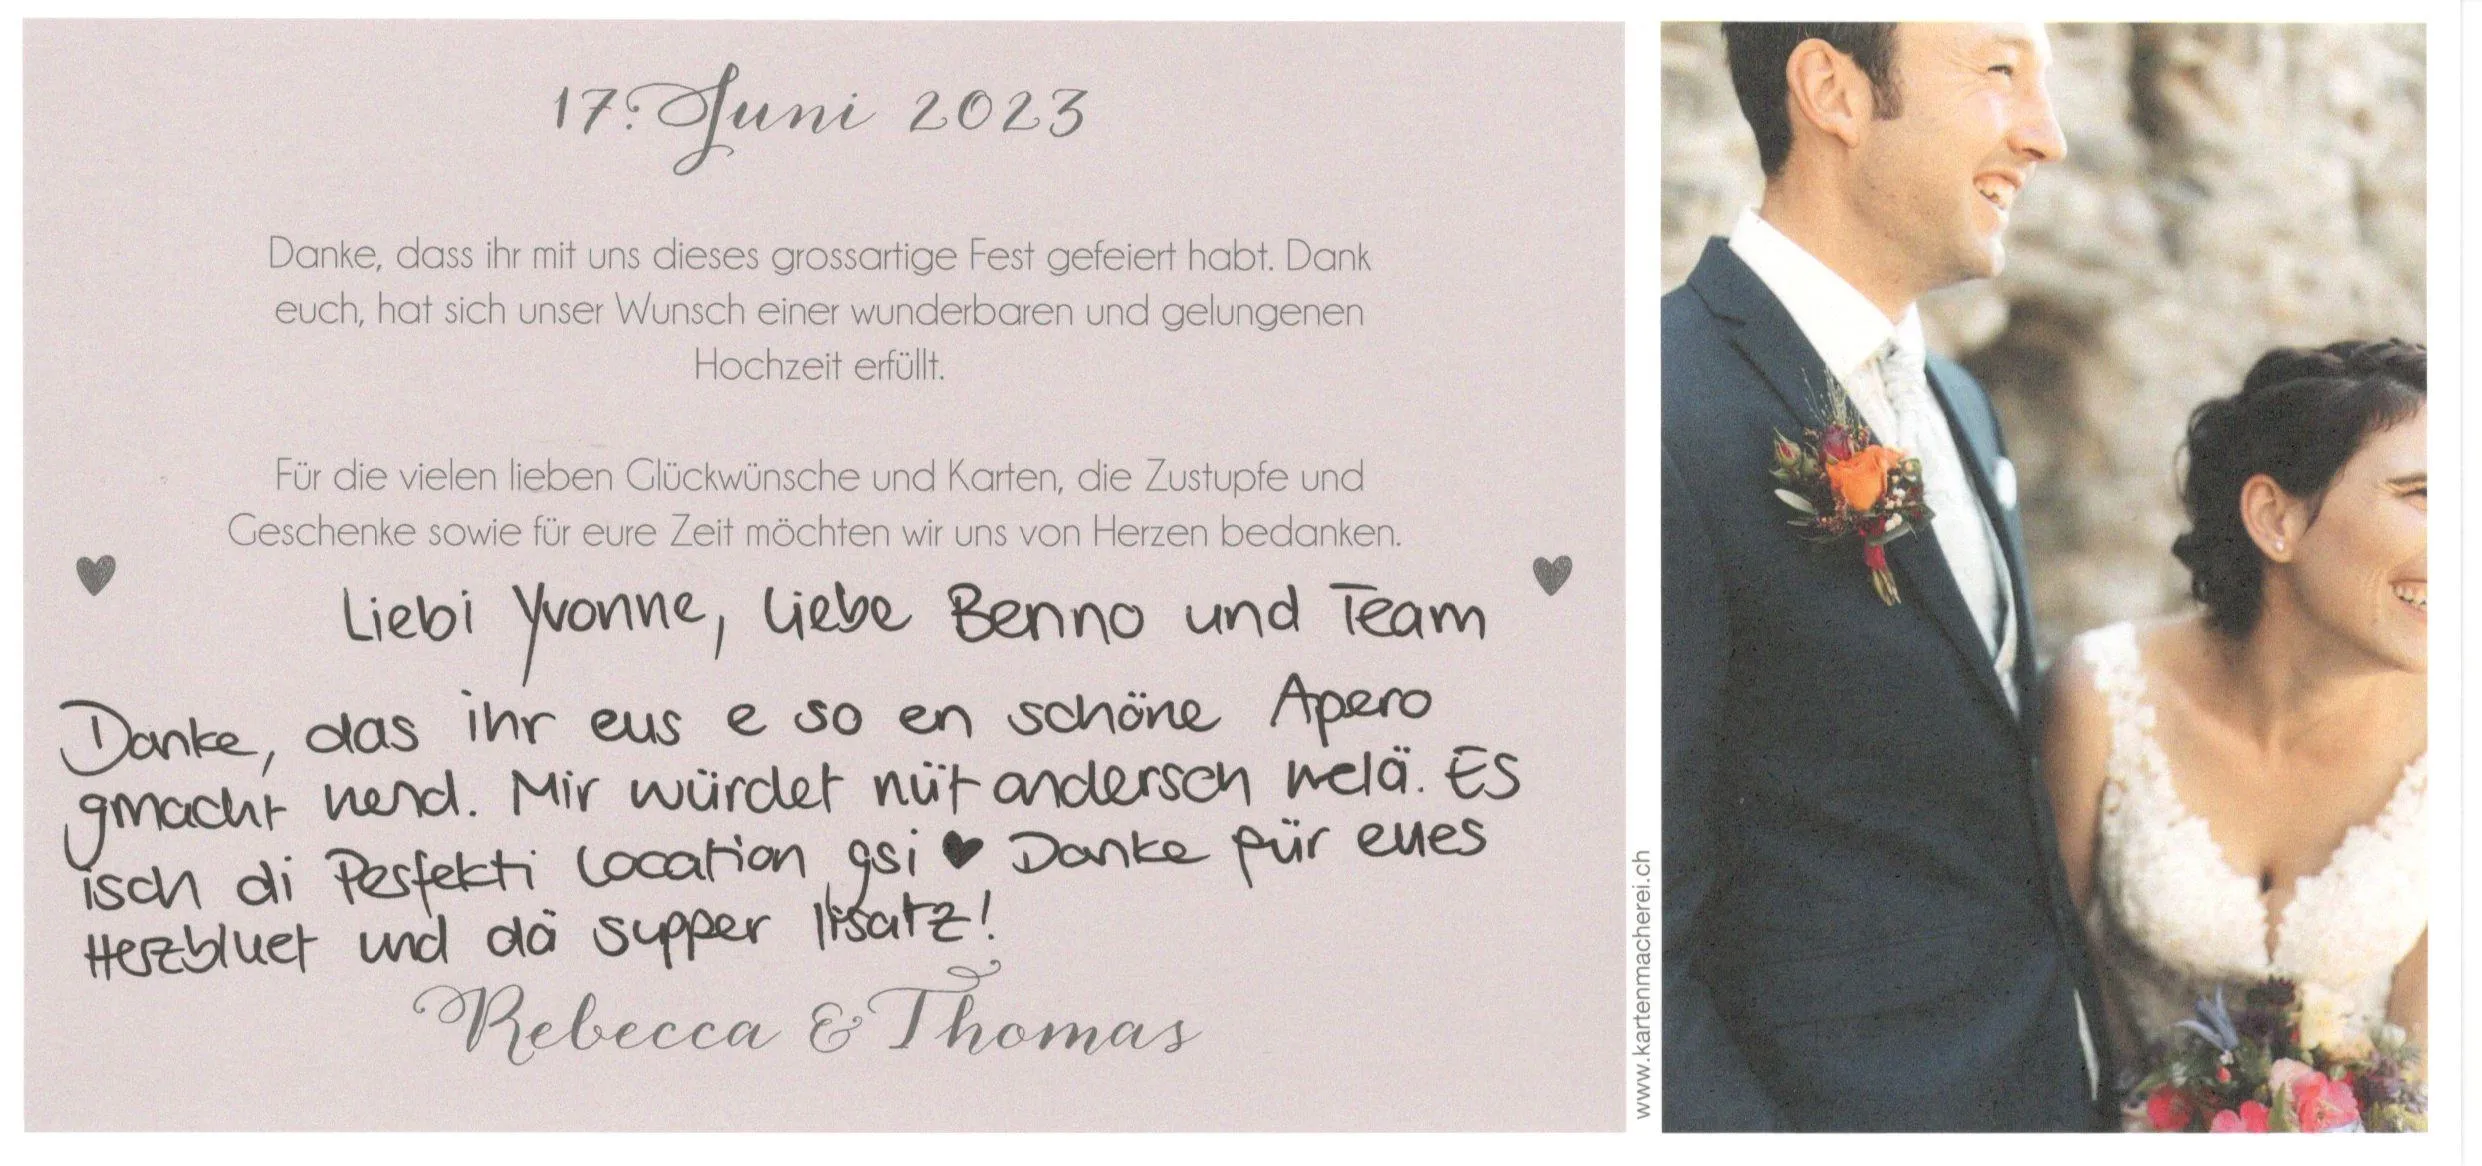 17. Juni 2023
Danke, dass ihr mit uns dieses grossartige Fest gefeiert habt. Dank
euch, hat sich unser Wunsch einer wunderbaren und gelungenen
Hochzeit erfüllt.
Für die vielen lieben Glückwünsche und Karten, die Zustupfe und
Geschenke sowie für eure Zeit möchten wir uns von Herzen bedanken.
Liebi Yvonne, liebe Benno und Team
Danke, das ihr eus e so en schöne Apero
gmacht hend. Mir würdet nüt andersch welä. Es
isch di Perfekti Location gsi ♥ Danke für eues
Herzbluet und dä supper Iisatz!
Rebecca & Thomas
www.kartenmacherei.ch